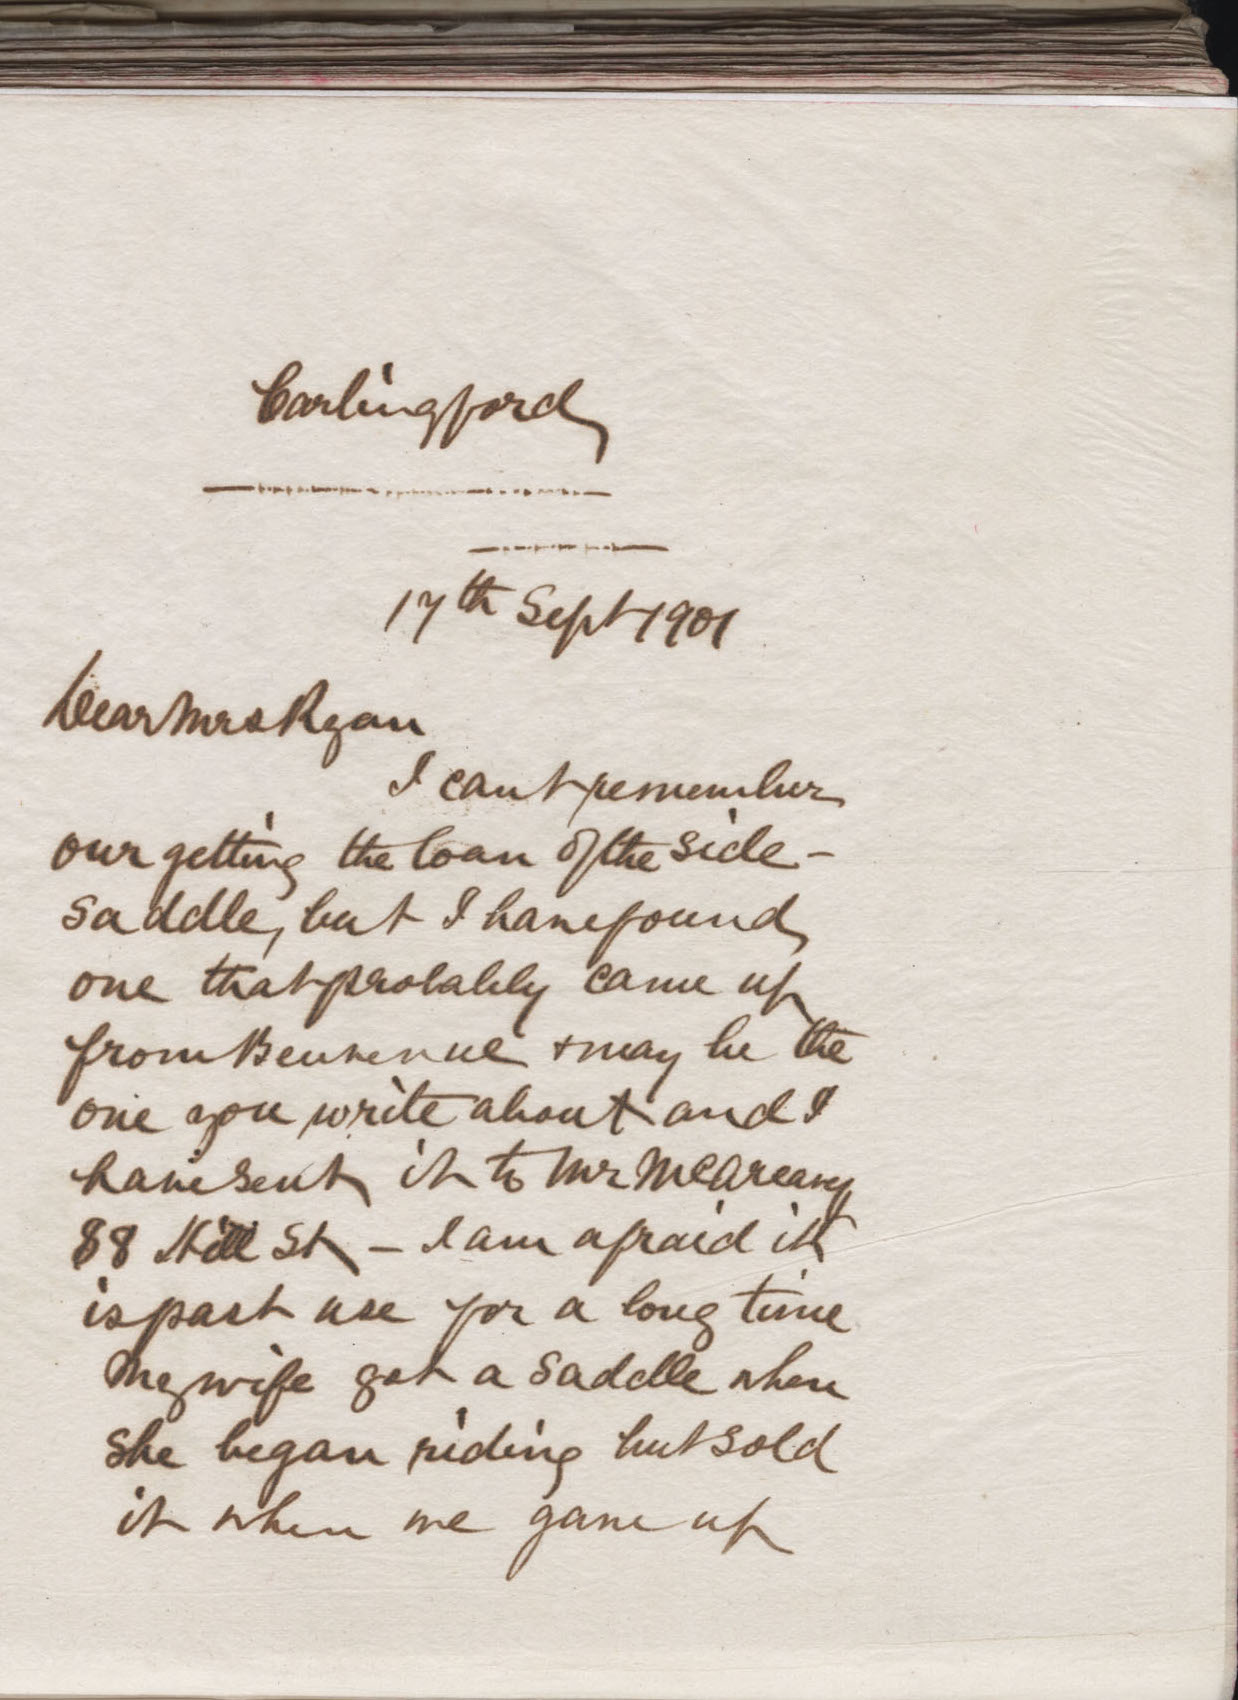 Carlingford
17th Sept 1901
Dear Mrs Ryan
I cant remember
our getting the loan of the side-
saddle, but I have found
one that probably came up
from Benvenue + may be the
one you write about and I
have sent it to Mr McAreavy
88 Hill St - I am afraid it
is past use for a long time
My wife got a saddle when
she began riding but sold
it when we gave up